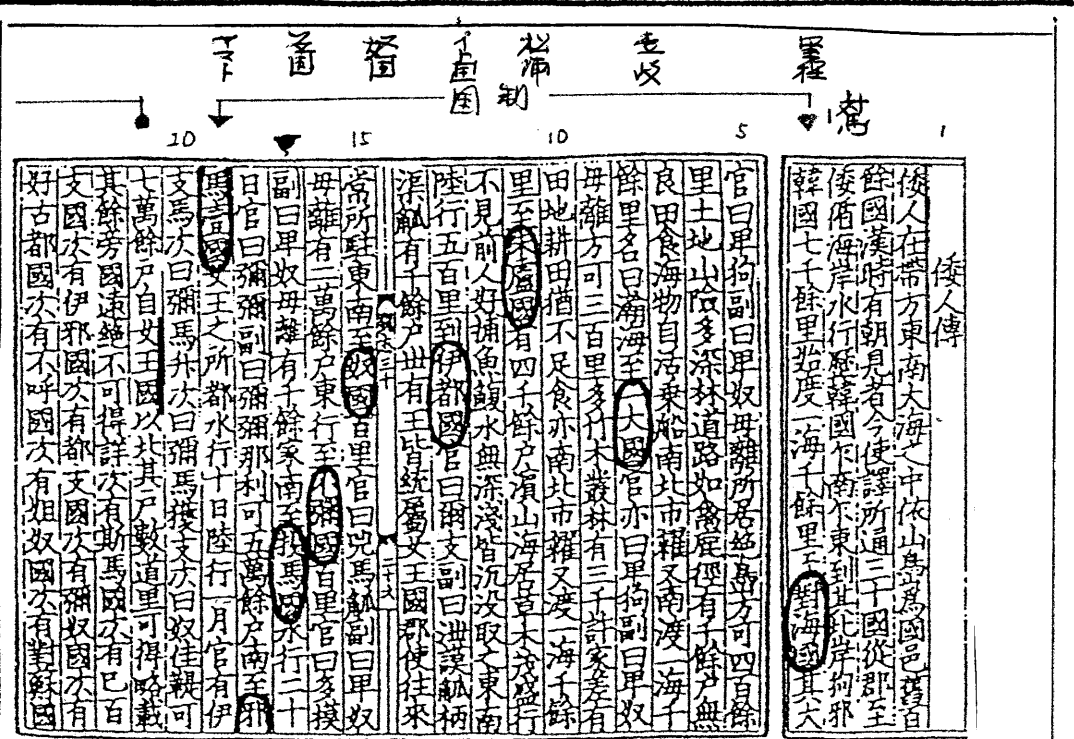 里程
対馬
壱岐
松浦
イト国
奴国
ヤマト
制
国
1 5 10 15 20
倭人傳
倭人在帶方東南大海之中依山島爲國邑舊百
餘國漢時有朝見者今使譯所通三十國從郡至
倭循海岸水行歷韓國乍南乍東到其北岸狗邪
韓國七千餘里始度一海千餘里至對海國其大
官曰卑狗副曰卑奴毋離所居絶島方可四百餘
里土地山險多深林道路如禽鹿徑有千餘户無
良田食海物自活乗船南北市糴又南渡一海千
餘里名曰瀚海至一大國官亦曰卑狗副曰卑奴
毋離方可三百里多竹木叢林有三千許家差有
田地耕田猶不足食亦南北市糴又渡一海千餘
里至末盧國有四千餘户濵山海居草木茂盛行
不見前人好捕魚鰒水無深淺皆沉没取之東南
陸行五百里到伊都國官曰爾支副曰泄謨觚柄
渠觚有千餘户世有王皆統屬女王國郡使往來
常所駐東南至奴國百里官曰兕馬觚副曰卑奴
毋離有二萬餘户東行至不彌國百里官曰多模
副曰卑奴毋離有千餘家南至投馬國水行二十
日官曰彌彌副曰彌彌那利可五萬餘户南至邪
馬壹國女王之所都水行十日陸行一月官有伊
支馬次曰彌馬升次曰彌馬獲支次曰奴佳鞮可
七萬餘户自女王國以北其户數道里可得略載
其餘旁國遠絶不可得詳次有斯馬國次有巳百
支國次有伊邪國次有都支國次有彌奴國次有
好古都國次有不呼國次有姐奴國次有對蘇國